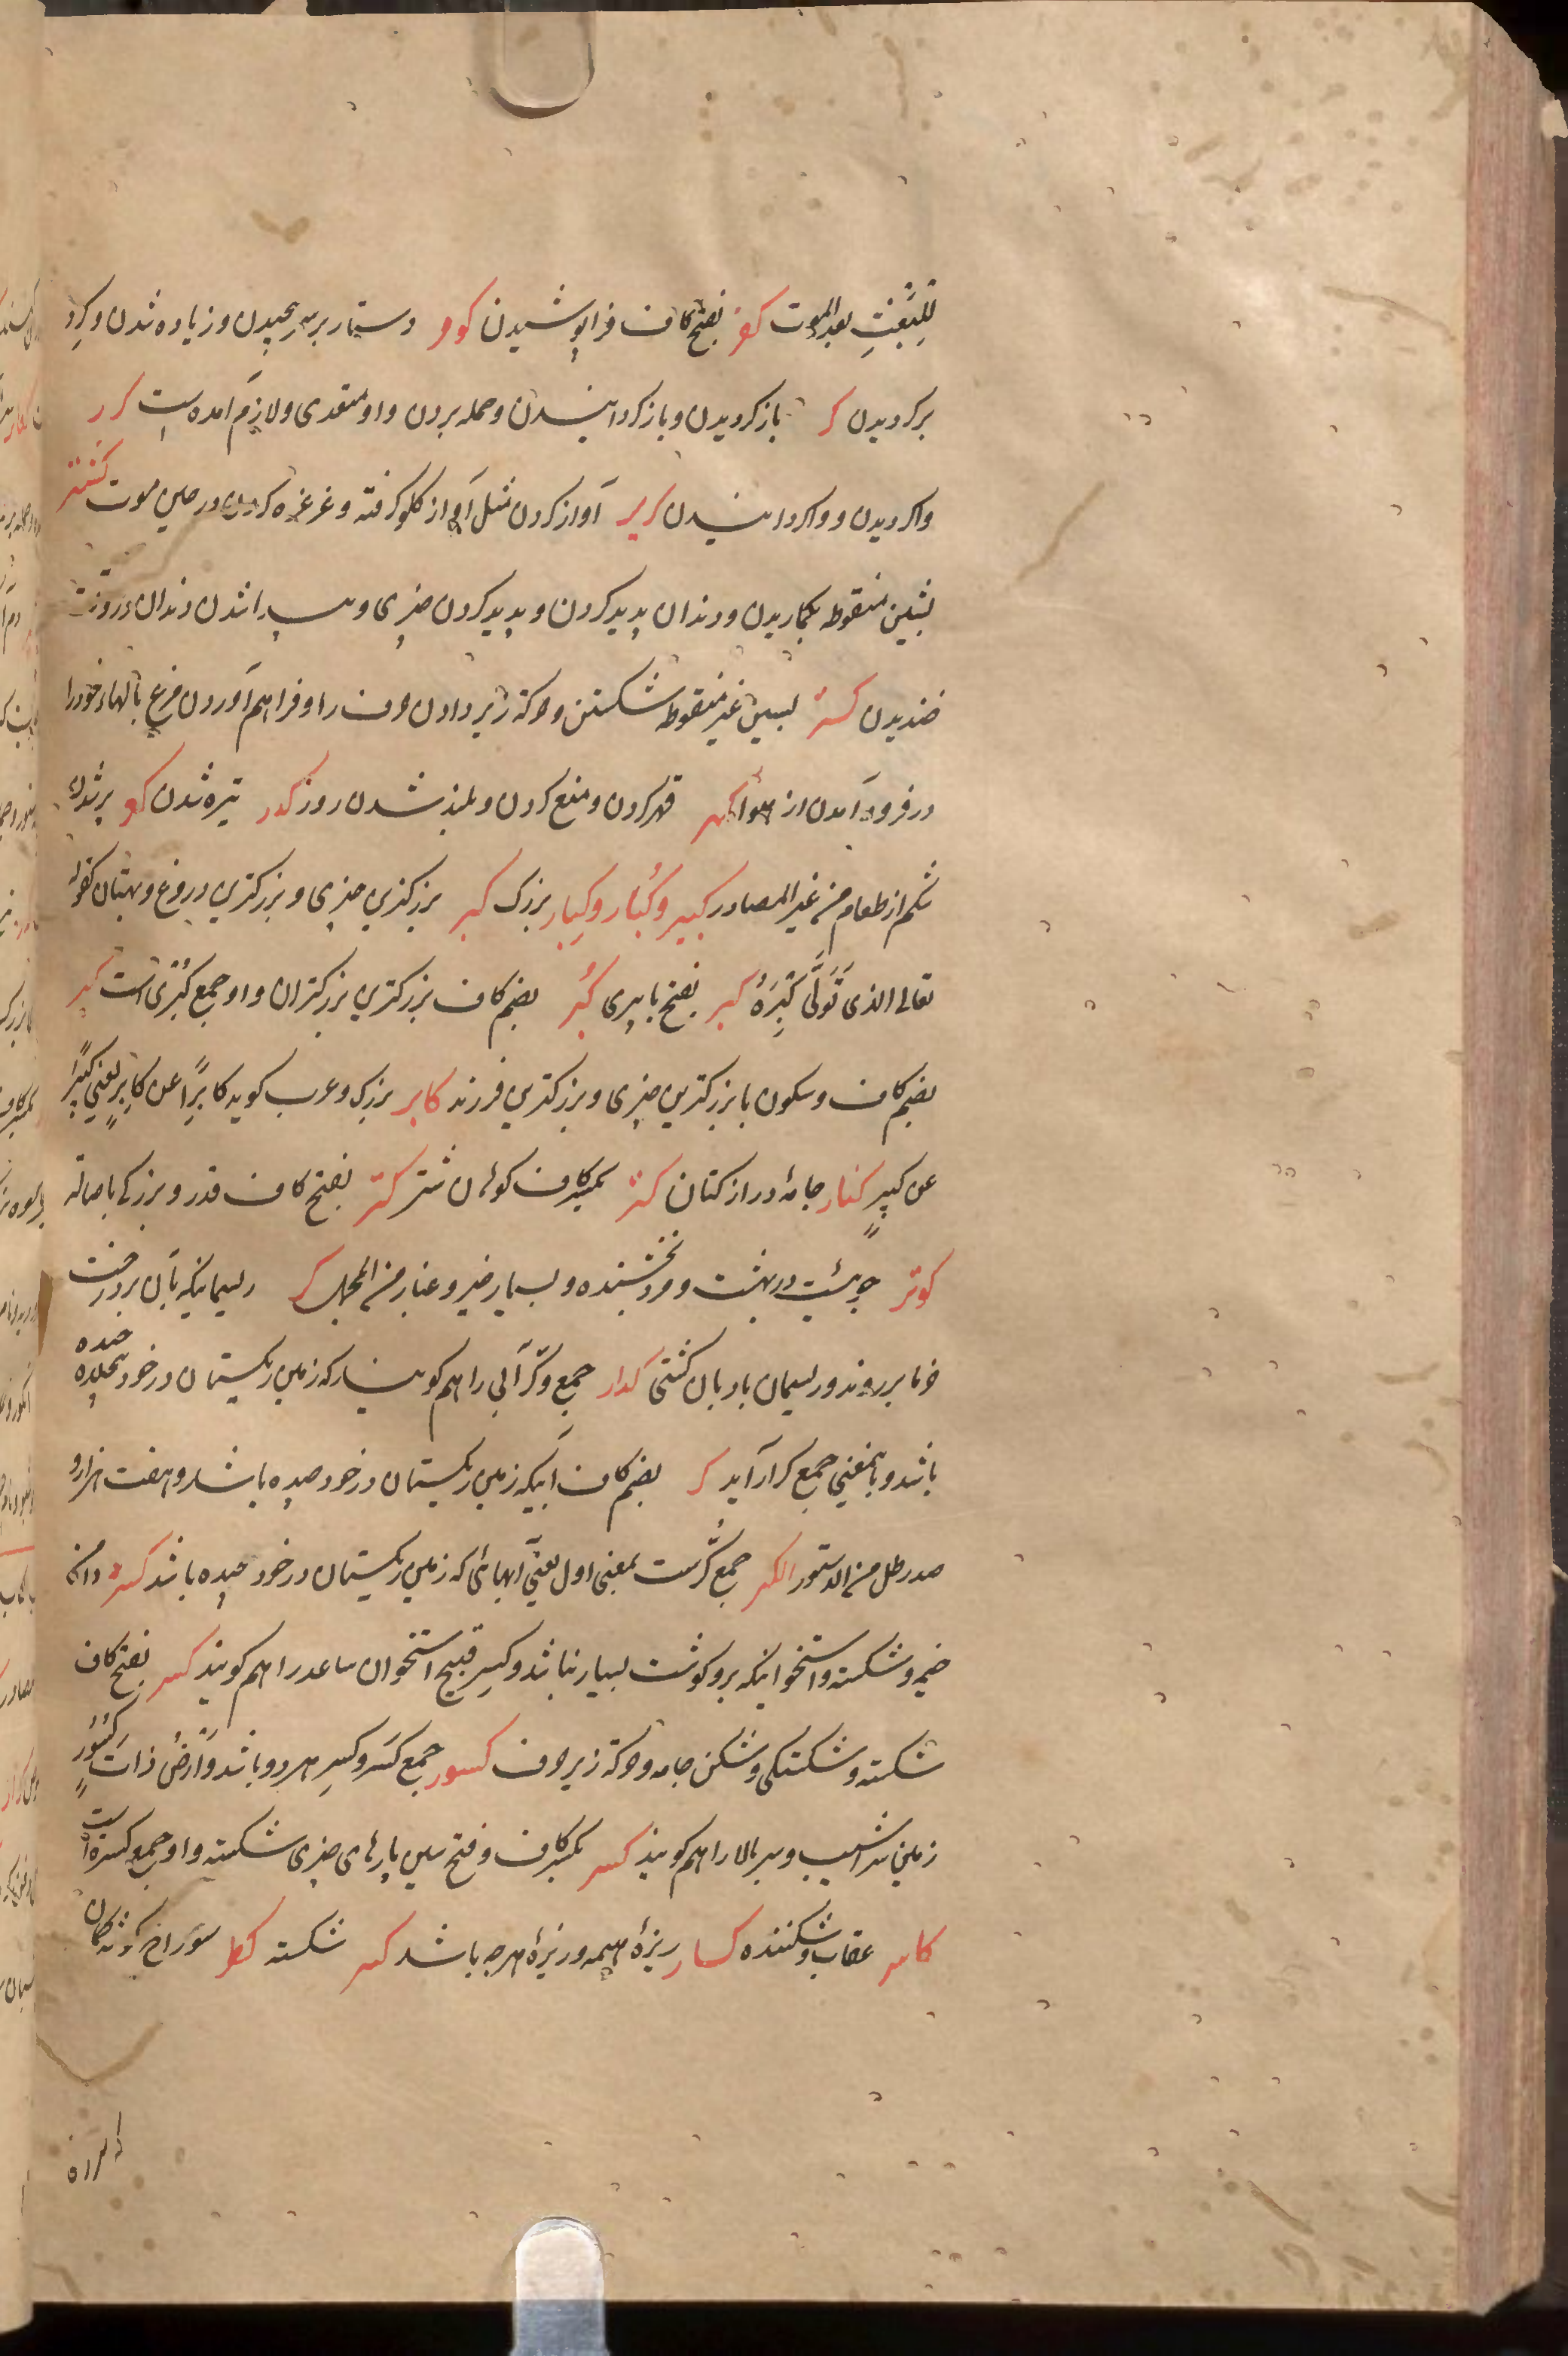 لِلبَعْثِ بعد الموت کفر بفتح کاف فرا پوشیدن کور دستار بر سر پیچیدن و زیاده شدن و کرد
برکردیدن کر بازکردیدن و بازکردانیدن و حمله بردن و او متعدی و لازم آمده است کرر
واکردیدن و واکردانیدن کریر آواز کردن مثل آواز کلو کرفته و غرغره کردن در حین موت کشر
بشین منقوطه بکماریدن و دندان پدید کردن و پدید کردن چیزی و پیدا شدن دندان در وقت
خندیدن کسر بسین غیر منقوطه شکستن و حرکة زیر دادن حرف را و فراهم آوردن مرغ بالهاء خود را
در فرود آمدن از هوا کهر قهر کردن و منع کردن و بلند شدن روز کدر تیره شدن پر شدن
شکم از طعام من غیر المصادر کبیر و کُبار و کِبار بزرک کبر بزرکترین چیزی و بزرکترین دروغ و بهتان کقوله
تعالی الذی تَوَلّٰی کِبْرَهُ کبر بفتح با پیری کُبَر بضم کاف بزرکترین بزرکتران و او جمع کبری است کبر
بضم کاف و سکون با بزرکترین چیزی و بزرکترین فرزند کابر بزرک و عرب کوید کابرًا عن کابِرٍ یعنی کبیرًا
عن کبیرٍ کتار جامهٔ دراز کتان کتر بکسر کاف کوهان شتر کتر بفتح کاف قدر و بزرکی باصالة
کوثر جوئیست در بهشت و مرد بخشنده و بسیار خیر و غبار من المجمل کر ریسمانیکه بآن بر درخت
خرما بر روند و ریسمان بادبان کشتی کرار جمع و کرّ آبی را هم کویند که زمین ریکستان در خود چیده
باشد و باینمعنی جمع کرار آید کر بضم کاف آبیکه زمین ریکستان در خود چیده باشد و هفت هزار و
صد رطل من الدستور جمع کُرّست بمعنی اول یعنی آبهائی که زمین ریکستان در خود چیده باشد کسر دامن
خیمه و شکسته و استخوانیکه برو کوشت بسیار نباشد و کسر قبیح استخوان ساعد را هم کویند کسر بفتح کاف
شکسته و شکستکی و شکن جامه و حرکة زیر حرف کسور جمع کسر و کسر هر دو باشد و ارضٌ ذاتُ کسورٍ
زمین سراشیب و سر بالا را هم کویند کسر بکسر کاف و فتح سین پارهای چیزی شکسته و او جمع کسره است
کاسر عقاب و شکننده کسار ریزهٔ هیمه و ریزهٔ هرچه باشد کسر شکسته کظر سوراخ کوشه کمان